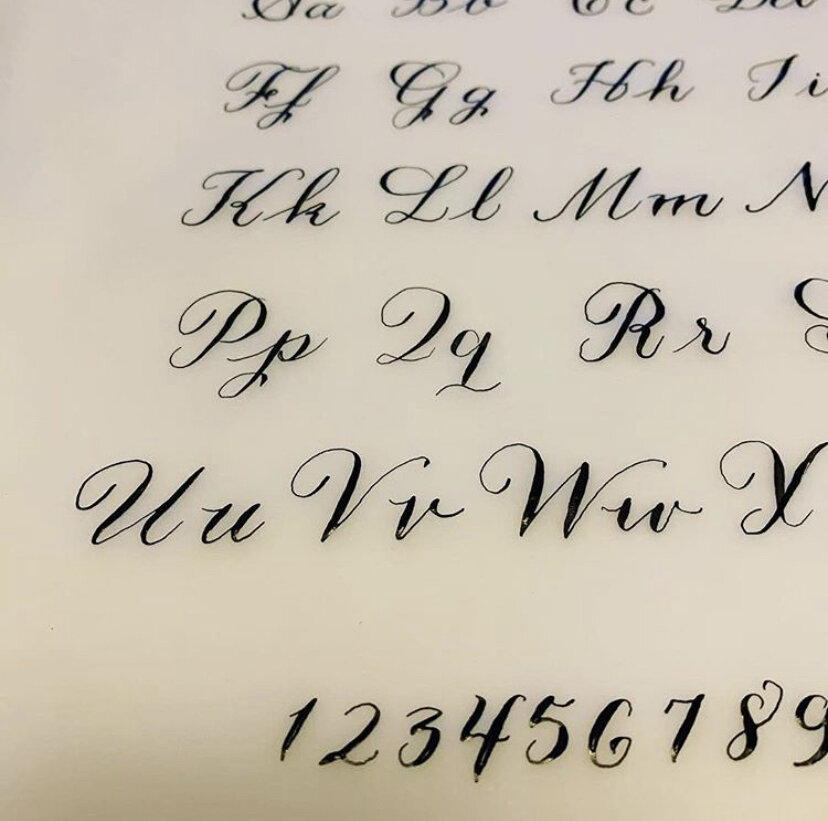 Aa Bb Cc Dd
Ff Gg Hh Ii
Kk Ll Mm N
Pp Qq Rr S
Uu Vv Ww X
1 2 3 4 5 6 7 8 9